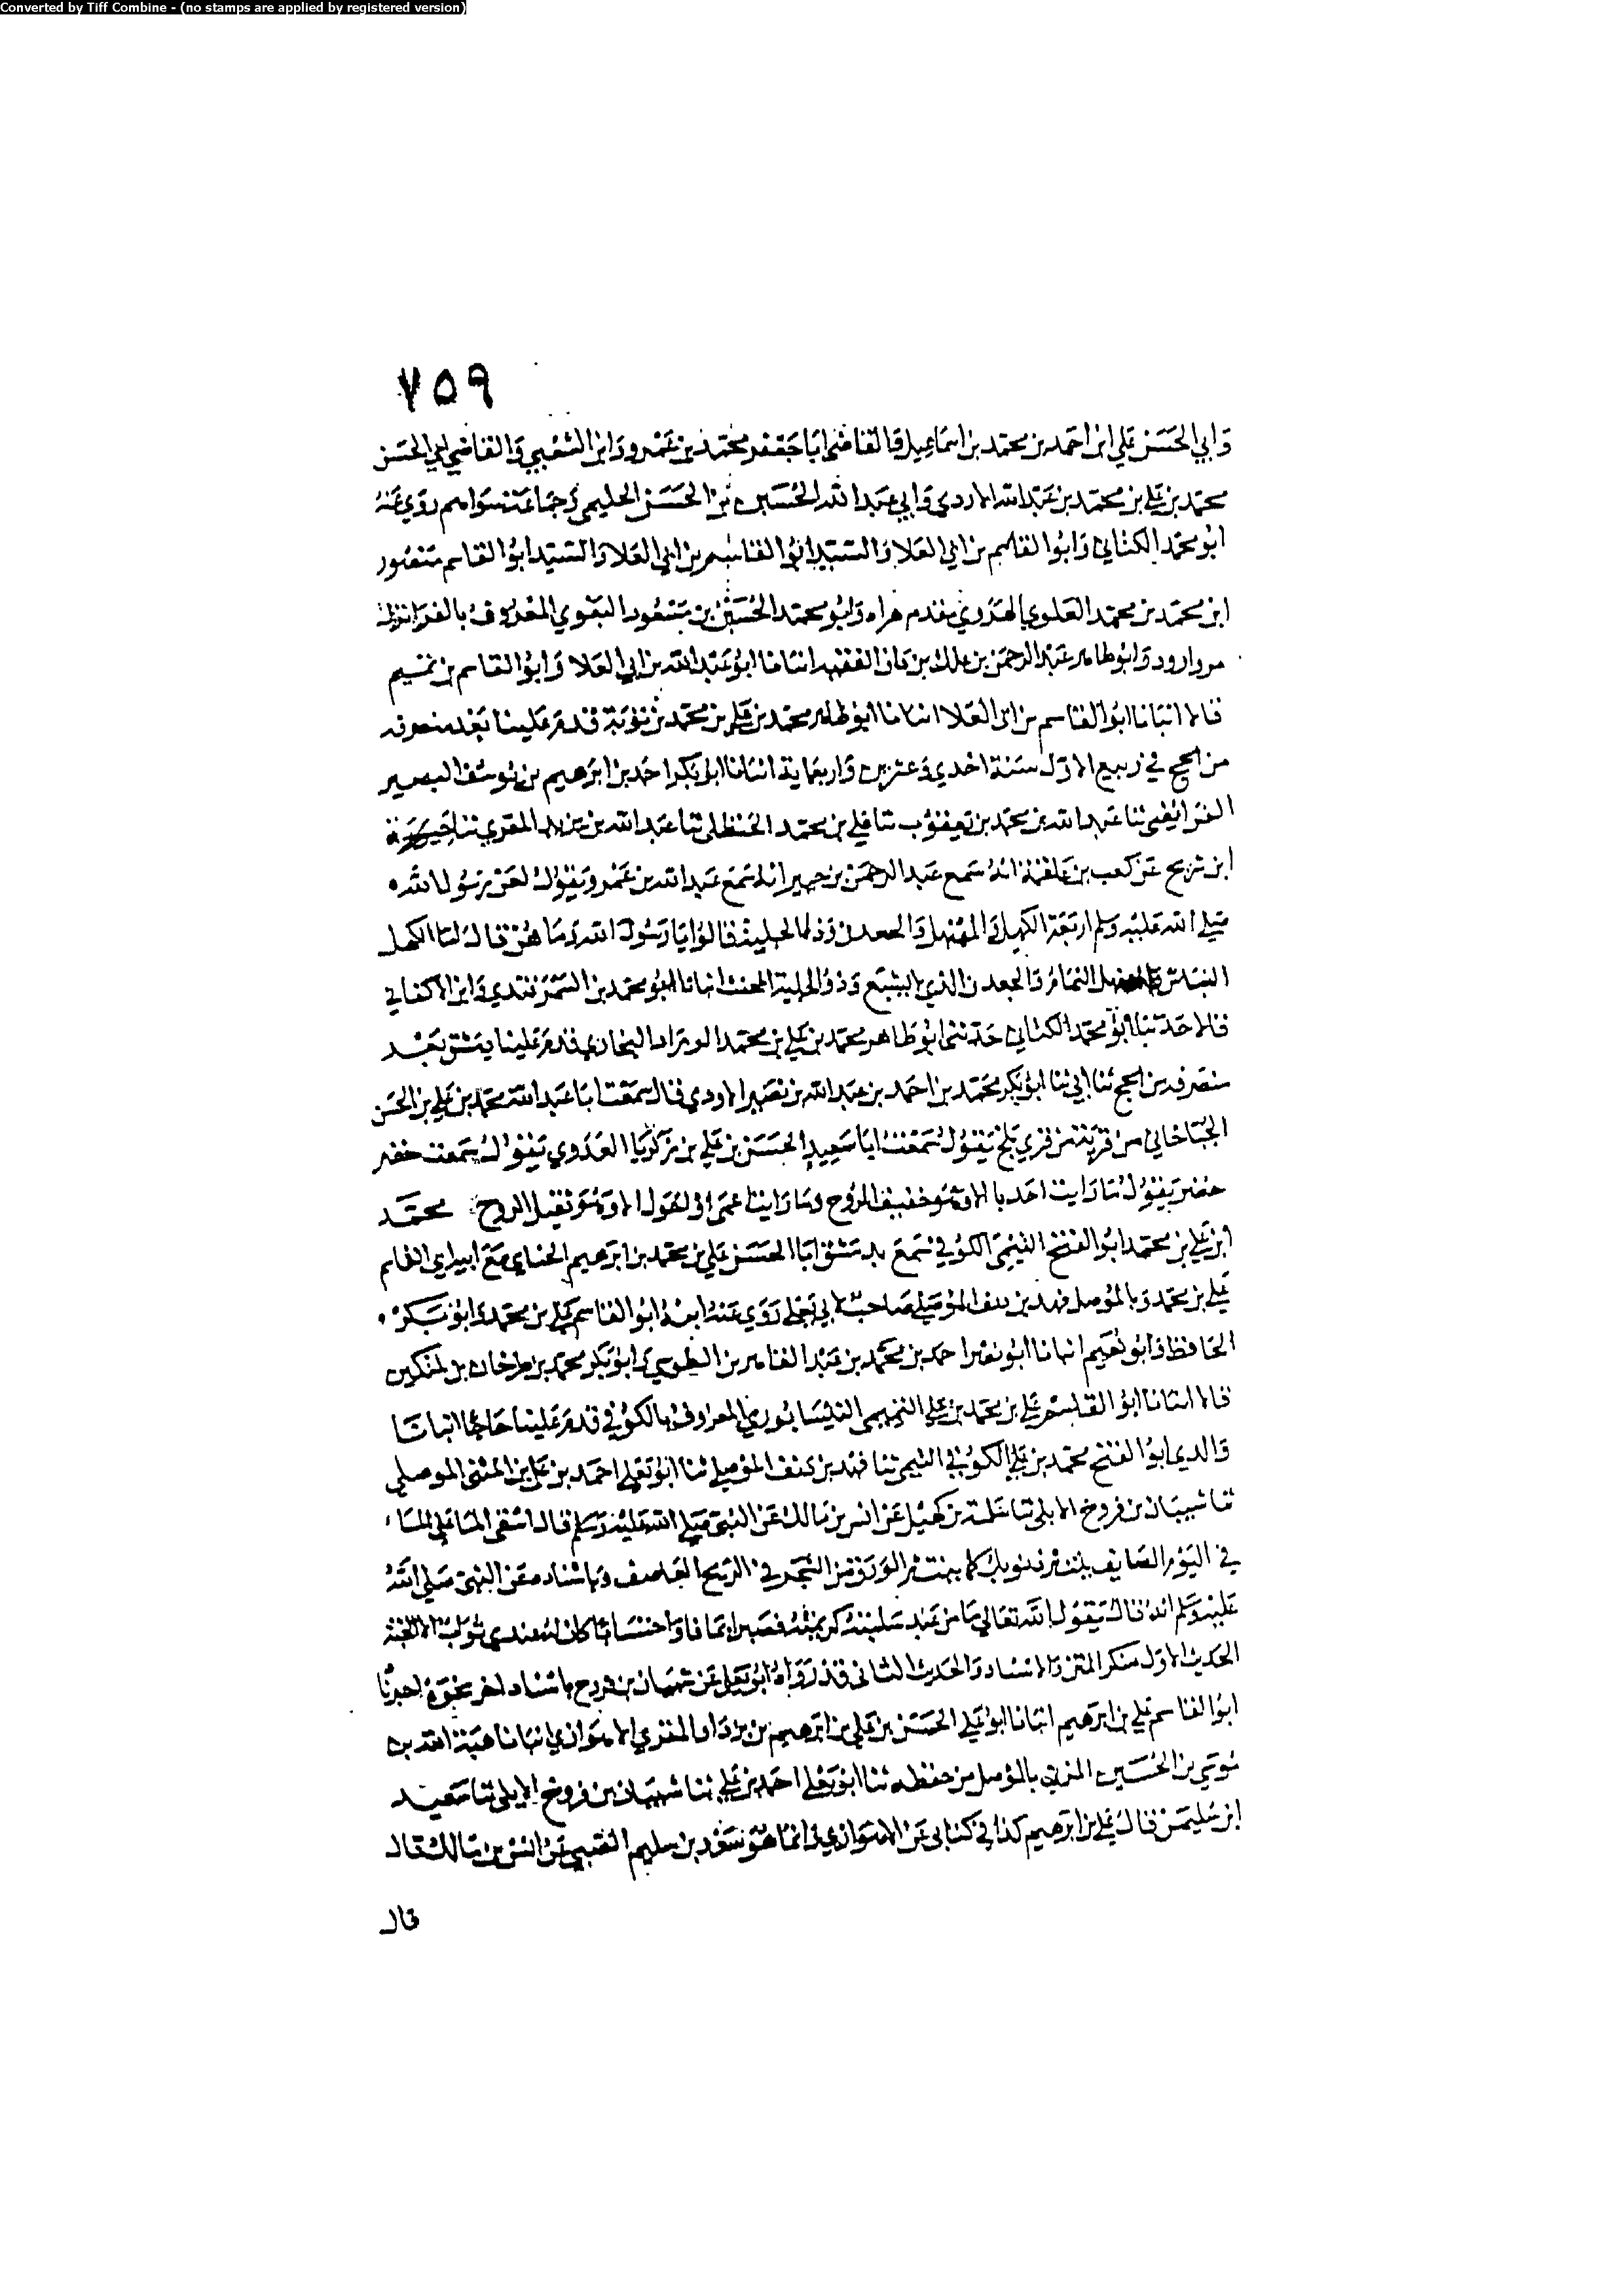 Converted by Tiff Combine - (no stamps are applied by registered version)
٧٥٩
وابي الحسن علي ابن احمد بن محمد بن اسماعيل والقاضي ابا جعفر محمد بن عمرو وابن الشعبي والقاضي ابي الحسن
محمد بن علي بن محمد بن عبد الله الازدي وابي عبد الله الحسين بن الحسن الحليمي وجماعة سواهم روي عنه
ابو محمد الكتاني وابو القاسم بن ابي العلا والسيد ابو القاسم بن ابي العلا والسيد ابو القاسم منصور
ابن محمد بن محمد العلوي الهروي مقدم هراه وابو محمد الحسين بن مسعود البغوي المعروف بالفرا
وابو طاهر عبد الرحمن بن ملك بن الفقيه انبانا ابو عبد الله بن ابي العلا وابو القاسم بن تميم
قالا انبانا ابو القاسم بن ابي العلا انبانا ابو طاهر محمد بن علي بن محمد بن قدم علينا بعد منصرفه
من الحج في ربيع الاول سنة احدي وعشرين واربعماية انبانا ابو بكر احمد بن ابرهيم بن يوسف البصير
الفرايضي ثنا عبد الله بن محمد بن يعقوب ثنا علي بن محمد الحنظلي ثنا عبد الله بن يزيد المقري ثنا حيوة
ابن شريح عن كعب بن علقمة انه سمع عبد الرحمن بن جبير انه سمع عبد الله بن عمرو يقول لعن رسول الله
صلي الله عليه وسلم اربعة وذا الحلية قالوا يا رسول الله وما هن قال اما
النباش النمام والجعدن الذي لا يشبع وذو الحلية المخنث انبانا ابو محمد بن السمرقندي وابن الاكفاني
قالا حدثنا ابو محمد الكتاني حدثني ابو طاهر محمد بن علي بن محمد البخاري قدم علينا دمشق بعد
منصرفه من الحج ثنا ابي ثنا ابو بكر محمد بن احمد بن عبد الله بن نصير الاودي قال سمعت ابا عبد الله محمد بن علي بن الحسن
الجباخاني من قرية من قري بلخ يقول سمعت ابا سعيد الحسن بن علي بن زكريا العدوي يقول سمعت
يقول ما رايت احدبا الا وهو خفيف الروح وما رايت اعمي او احول الا وهو ثقيل الروح محمد
ابن علي بن محمد ابو الفتح التميمي الكوفي سمع بدمشق ابا الحسن علي بن محمد بن ابرهيم الحناي مع ابي القاسم
علي بن محمد وبالموصل فهد بن الموصلي صاحب ابي يعلي روي عنه ابنه ابو القاسم علي بن محمد وابو بكر
الحافظ وابو نعيم انبانا ابو نصر احمد بن محمد بن عبد القاهر بن الطوسي وابو بكر محمد بن طرخان بن
قالا انبانا ابو القاسم علي بن محمد بن علي التميمي النيسابوري المعروف بالكوفي قدم علينا حاجا انبانا
والدي ابو الفتح محمد بن علي الكوفي التيمي ثنا فهد بن الموصلي ثنا ابو يعلي احمد بن علي بن المثني الموصلي
ثنا شيبان بن فروخ الابلي ثنا سلمة بن كهيل عن انس بن مالك عن النبي صلي الله عليه وسلم قال اسقي الما علي الماء
في اليوم الصايف ينتثر ذنوبك كما ينتثر الورق من الشجر في الريح العاصف وباسناده عن النبي صلي الله
عليه وسلم انه قال يقول الله تعالي ما من عبد سلبته كريمتيه فصبر ايمانا واحتسابا كان له عندي ثواب الا الجنة
الحديث الاول منكر المتن والاسناد والحديث الثاني قد رواه ابو يعلي عن شيبان بن فروخ باسناد اخر نحوه اخبرنا
ابو القاسم علي بن ابرهيم انبانا ابو علي الحسن بن علي بن ابرهيم بن يزداد المقري الاهوازي انبانا هبة الله بن
موسي بن الحسين المزني بالموصل من حفظه ثنا ابو يعلي احمد بن علي ثنا شيبان بن فروخ الابلي ثنا سعيد
ابن سليمن قال علي بن ابرهيم كذا في كتابي عن الاهوازي وانما هو سعيد بن سليم الضبي عن انس بن مالك قال
قال